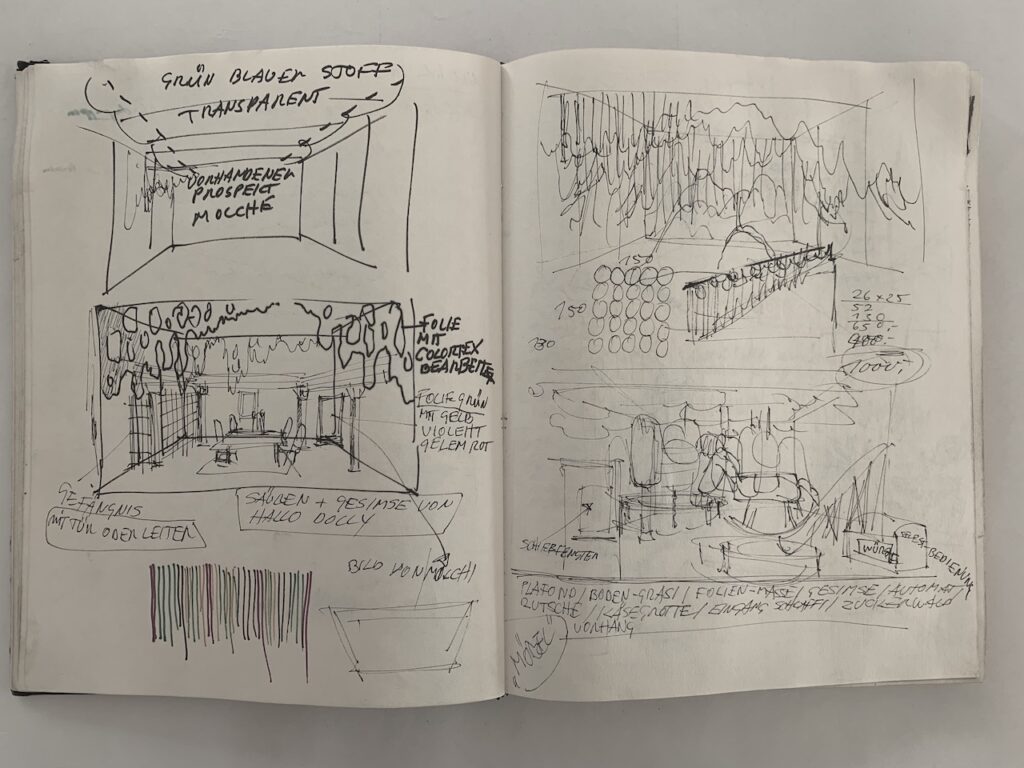 GRÜN BLAUER STOFF
TRANSPARENT
VORHANDENER
PROSPEKT
MOLCHE
FOLIE
MIT
COLORTEX
BEARBEITET
FOLIE GRÜN
MIT GELB
VIOLETT
ROT
GEFÄNGNIS
MIT TÜR ODER LEITER
SÄULEN + GESIMSE VON
HALLO DOLLY
BILD VON MOLCHI
150
150
130
26 x 25
52
130
650.-
1000.-
SCHIEBFENSTER
SELBST-BEDIENUNG
WÜRST
PLAFOND / BODEN-GRAS / / FOLIEN-MASE / GESIMSE / AUTOMAT /
RUTSCHE / / KÄSEGROTTE / EINGANG / ZUCKERWALD
VORHANG
"MÖBEL"